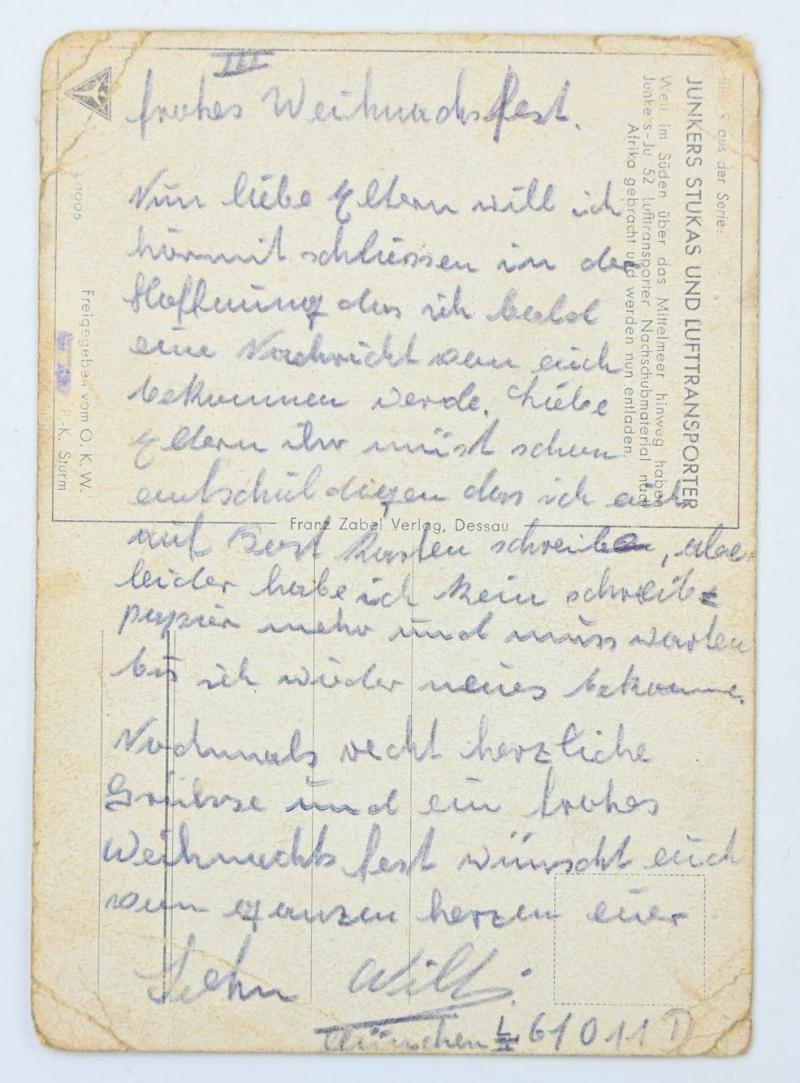 III
frohes Weihnachsfest.
Nun liebe Eltern will ich
hirmit schliessen in der
Hoffnung das ich bald
eine Nachricht von euch
bekommen werde. Liebe
Eltern ihr müst schon
entschuldigen das ich euch
auf Post karten schreibe, aber
leider habe ich kein schreib=
papier mehr und muss warten
bis ich wieder neues bekomme.
Nochmals recht herzliche
Grüsse und ein frohes
Weihnachts fest wünscht euch
von ganzen herzen euer
Sohn Willi.
München 61011 D
aus der Serie:
JUNKERS STUKAS UND LUFTTRANSPORTER
Weit im Süden über das Mittelmeer hinweg haben
Junkers-Ju 52 Lufttransporter Nachschubmaterial nach
Afrika gebracht und werden nun entladen.
Franz Zabel Verlag, Dessau
1005
Freigegeben vom O. K. W.
P. K. Sturm